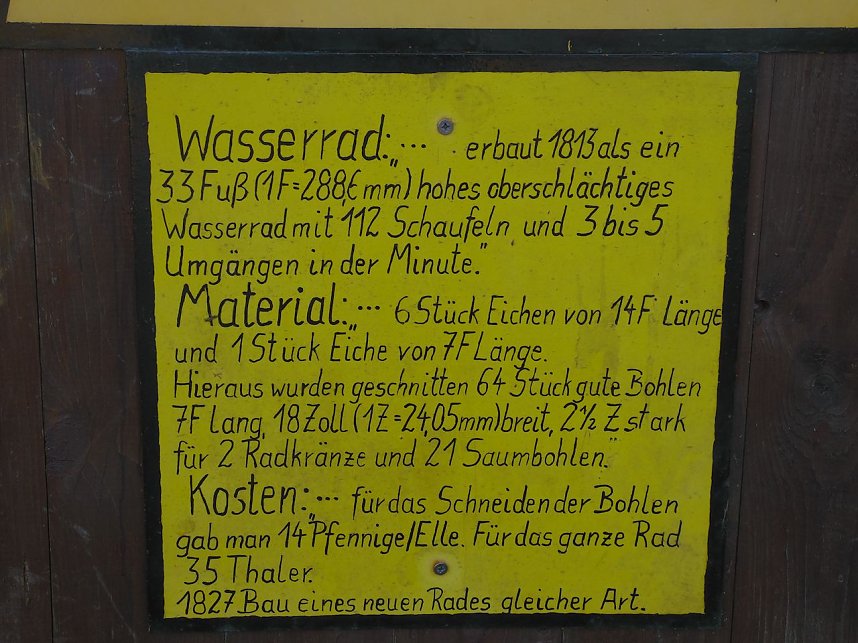 Wasserrad:„... erbaut 1813 als ein
33 Fuß (1F=288,6 mm) hohes oberschlächtiges
Wasserrad mit 112 Schaufeln und 3 bis 5
Umgängen in der Minute."
Material:„... 6 Stück Eichen von 14F Länge
und 1 Stück Eiche von 7F Länge.
Hieraus wurden geschnitten 64 Stück gute Bohlen
7F lang, 18 Zoll (1Z=24,05mm) breit, 2½ Z stark
für 2 Radkränze und 21 Saumbohlen."
Kosten:„... für das Schneiden der Bohlen
gab man 14 Pfennige/Elle. Für das ganze Rad
35 Thaler.
1827 Bau eines neuen Rades gleicher Art.